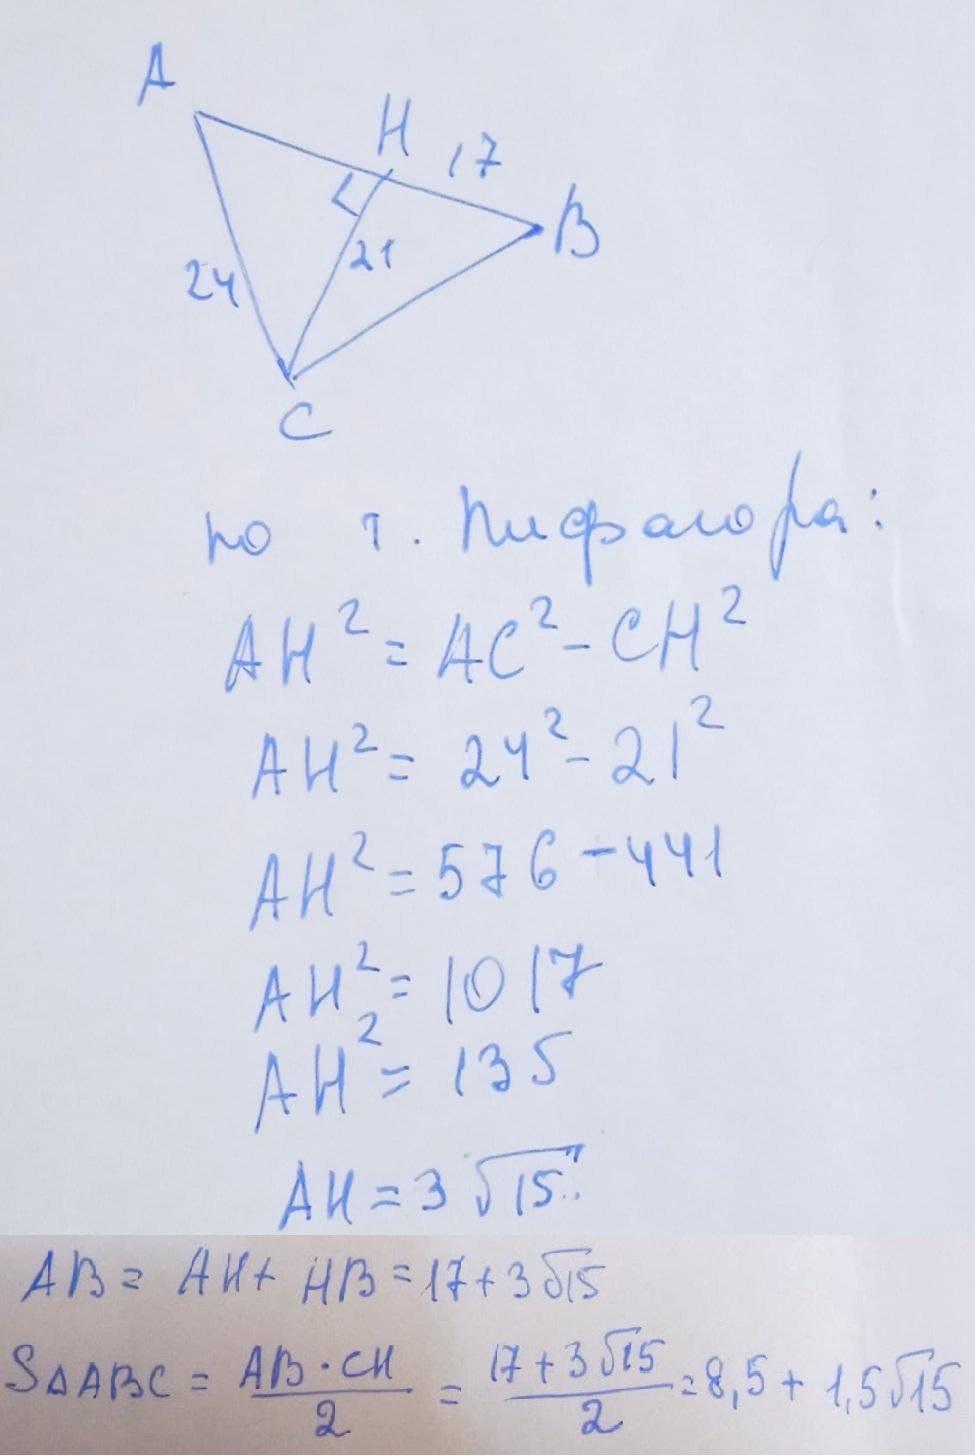 A
H
17
B
24
21
C
по т. Пифагора:
AH² = AC² - CH²
AH² = 24² - 21²
AH² = 576 - 441
AH² = 1017
AH² = 135
AH = 3√15
AB = AH + HB = 17 + 3√15
S△ABC = AB · CH / 2 = 17 + 3√15 / 2 = 8,5 + 1,5√15